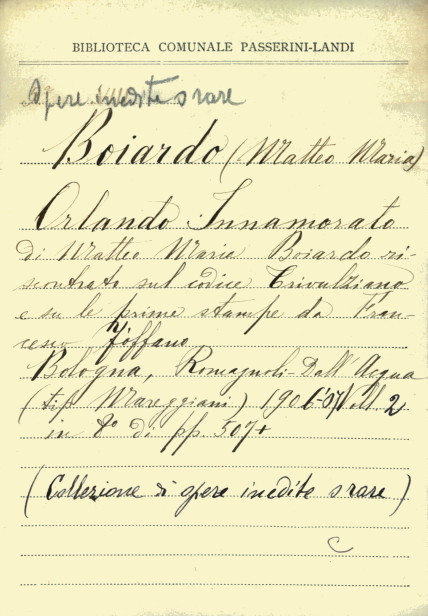 BIBLIOTECA COMUNALE PASSERINI-LANDI
Opere inedite o rare
Boiardo (Matteo Maria)
Orlando Innamorato
di Matteo Maria Boiardo ri-
scontrato sul codice Trivulziano
e su le prime stampe da Fran-
cesco Fòffano
Bologna, Romagnoli-Dall'Acqua
(tip. Mareggiani) 1906-07 Voll 2
in 8° di pp. 507+
(Collezione di opere inedite o rare)
C